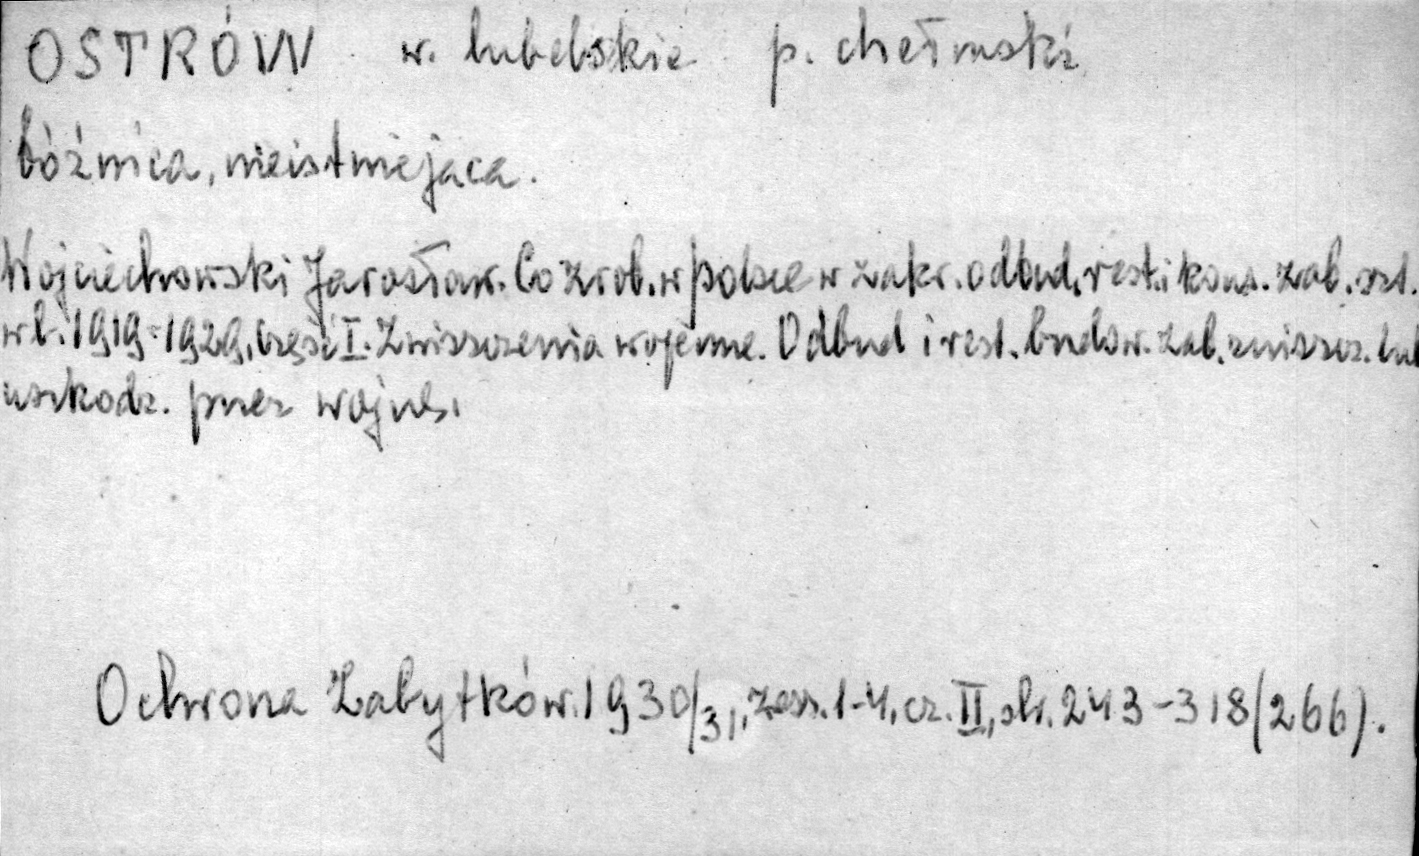 OSTRÓW w. lubelskie p. chełmski
bóźnica, nieistniejąca.
Wojciechowski Jarosław. Co zrob. w Polsce w zakr. odbud. rest. i kons. zab. szt.
w l. 1919-1929, Część I. Zniszczenia wojenne. Odbud i rest. budow. zab. zniszcz. lub
uszkodz. przez wojnę.
Ochrona Zabytków. 1930/31, zesz. 1-4, cz. II, str. 243-318 (266).